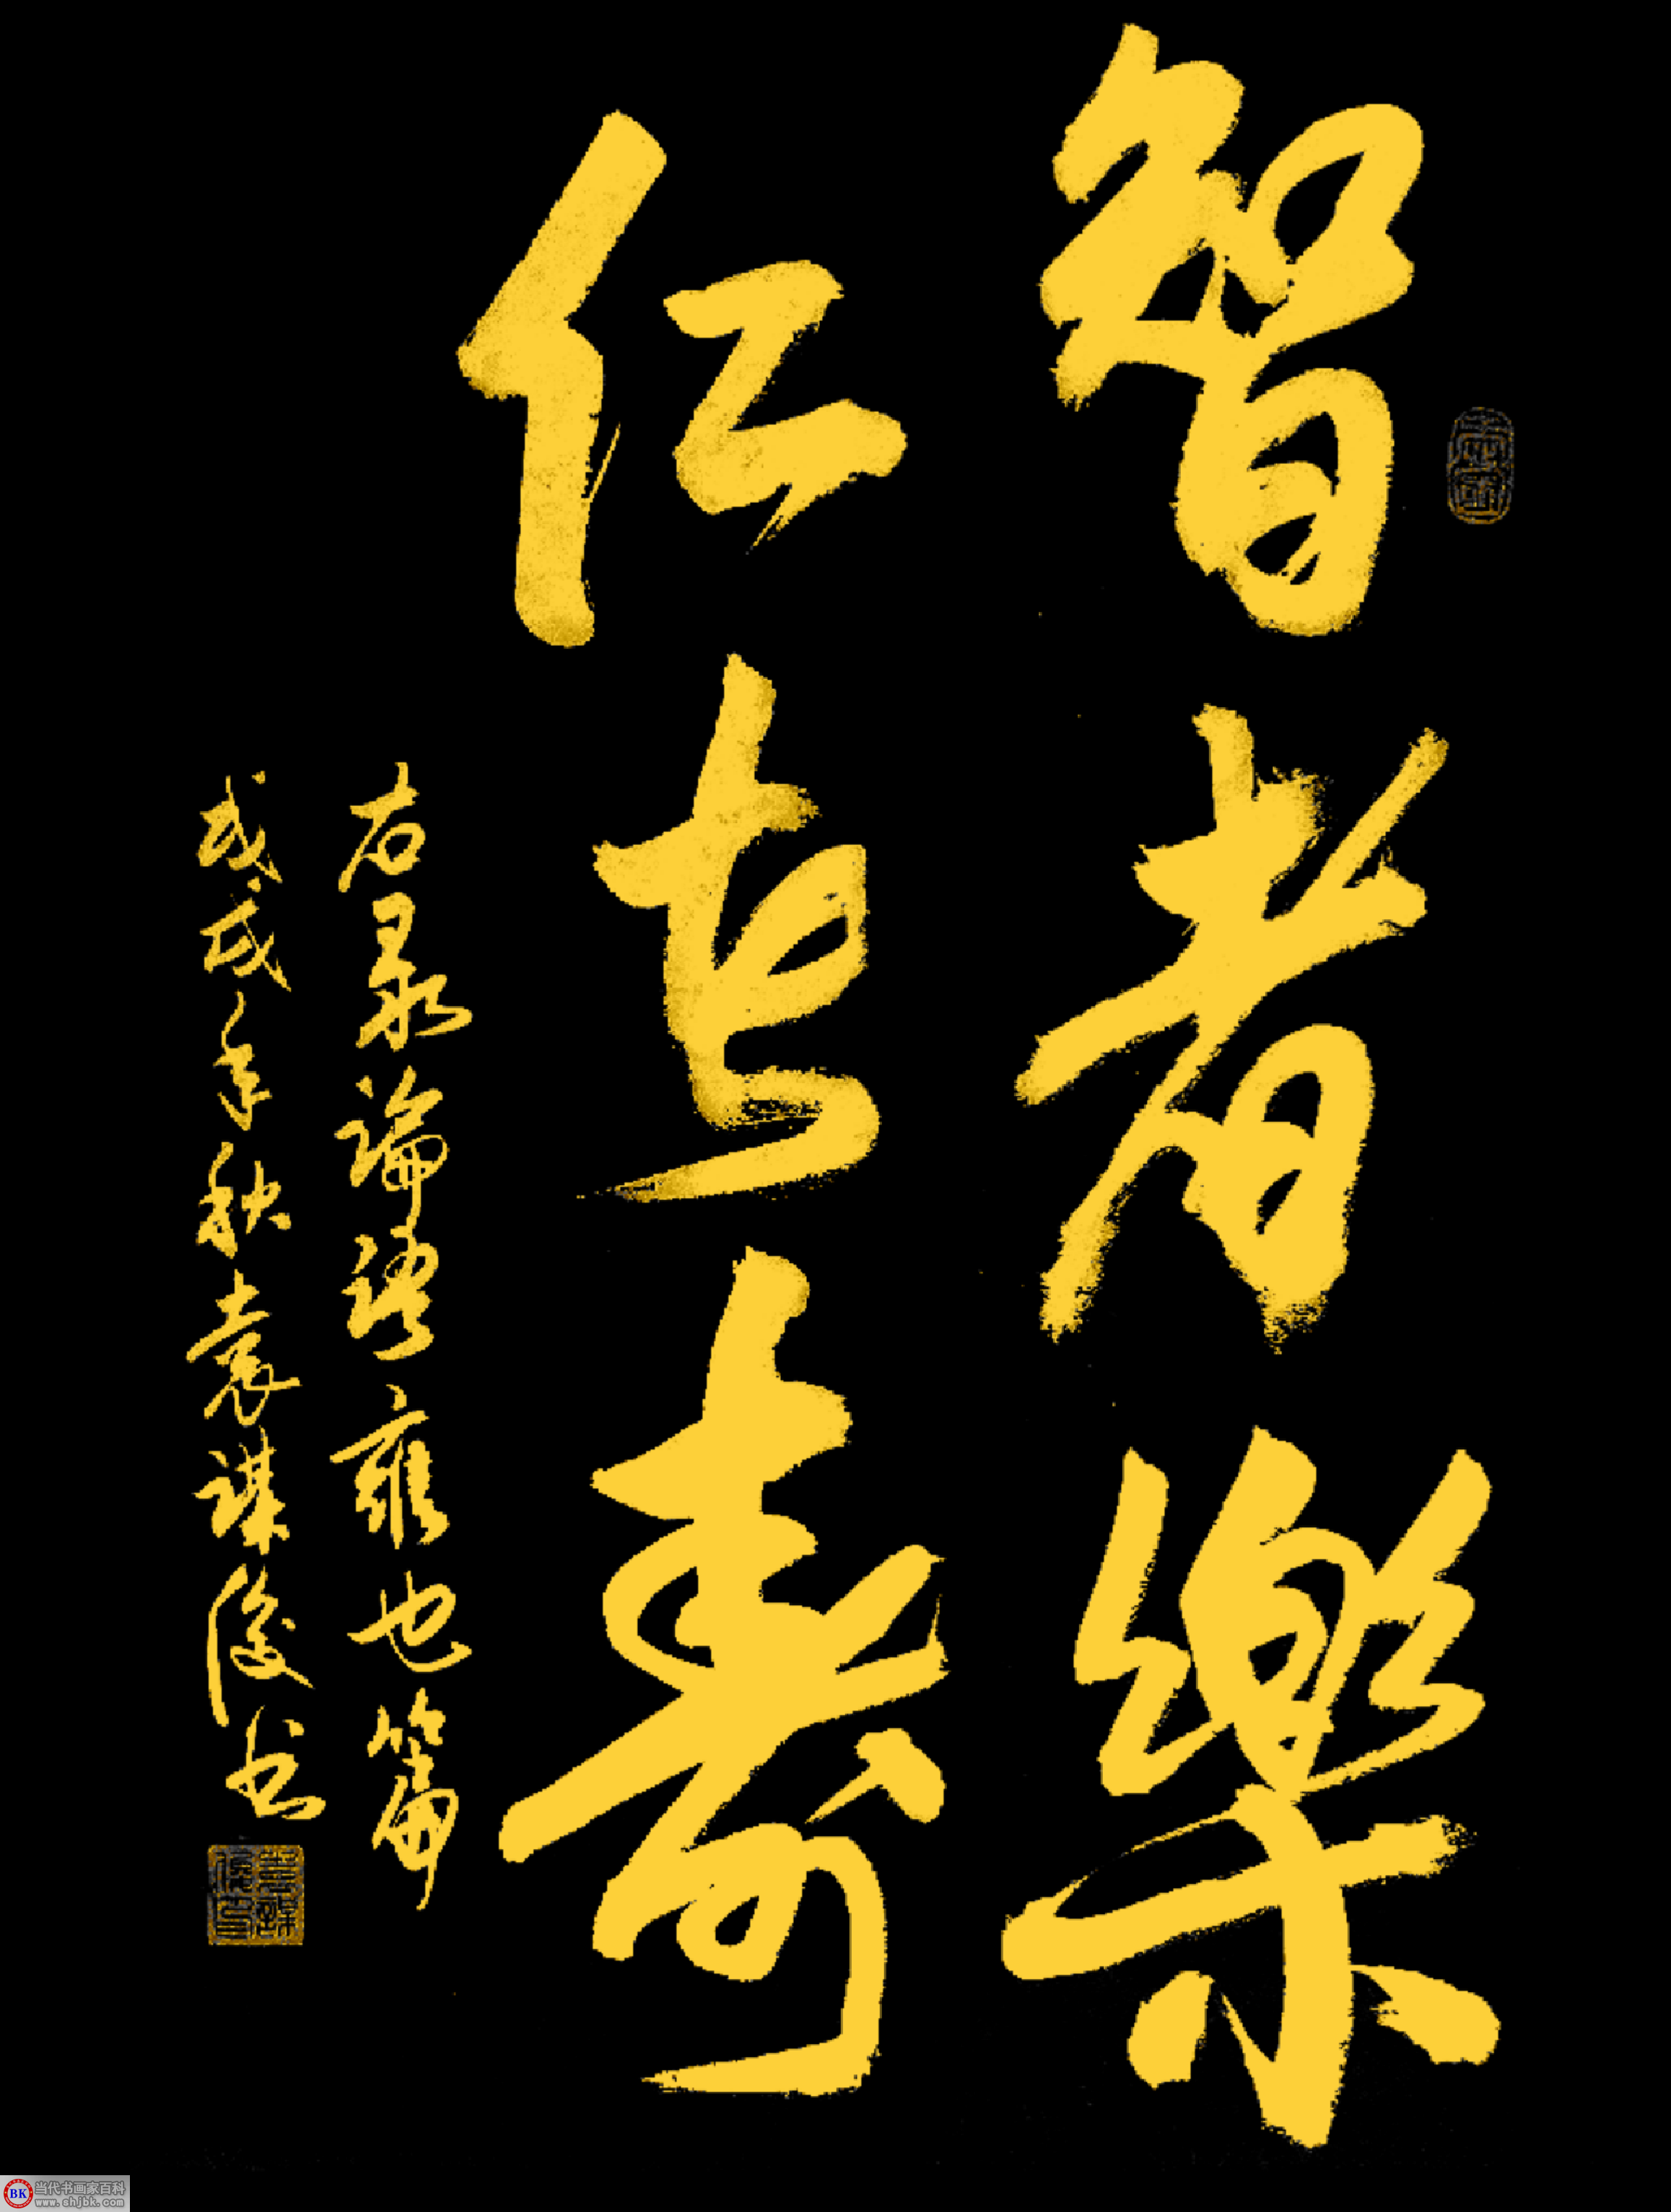 智者樂
仁者壽
右录論語雍也篇
戊戌年秋袁謀俊书
当代书画家百科
BK
www.shjbk.com